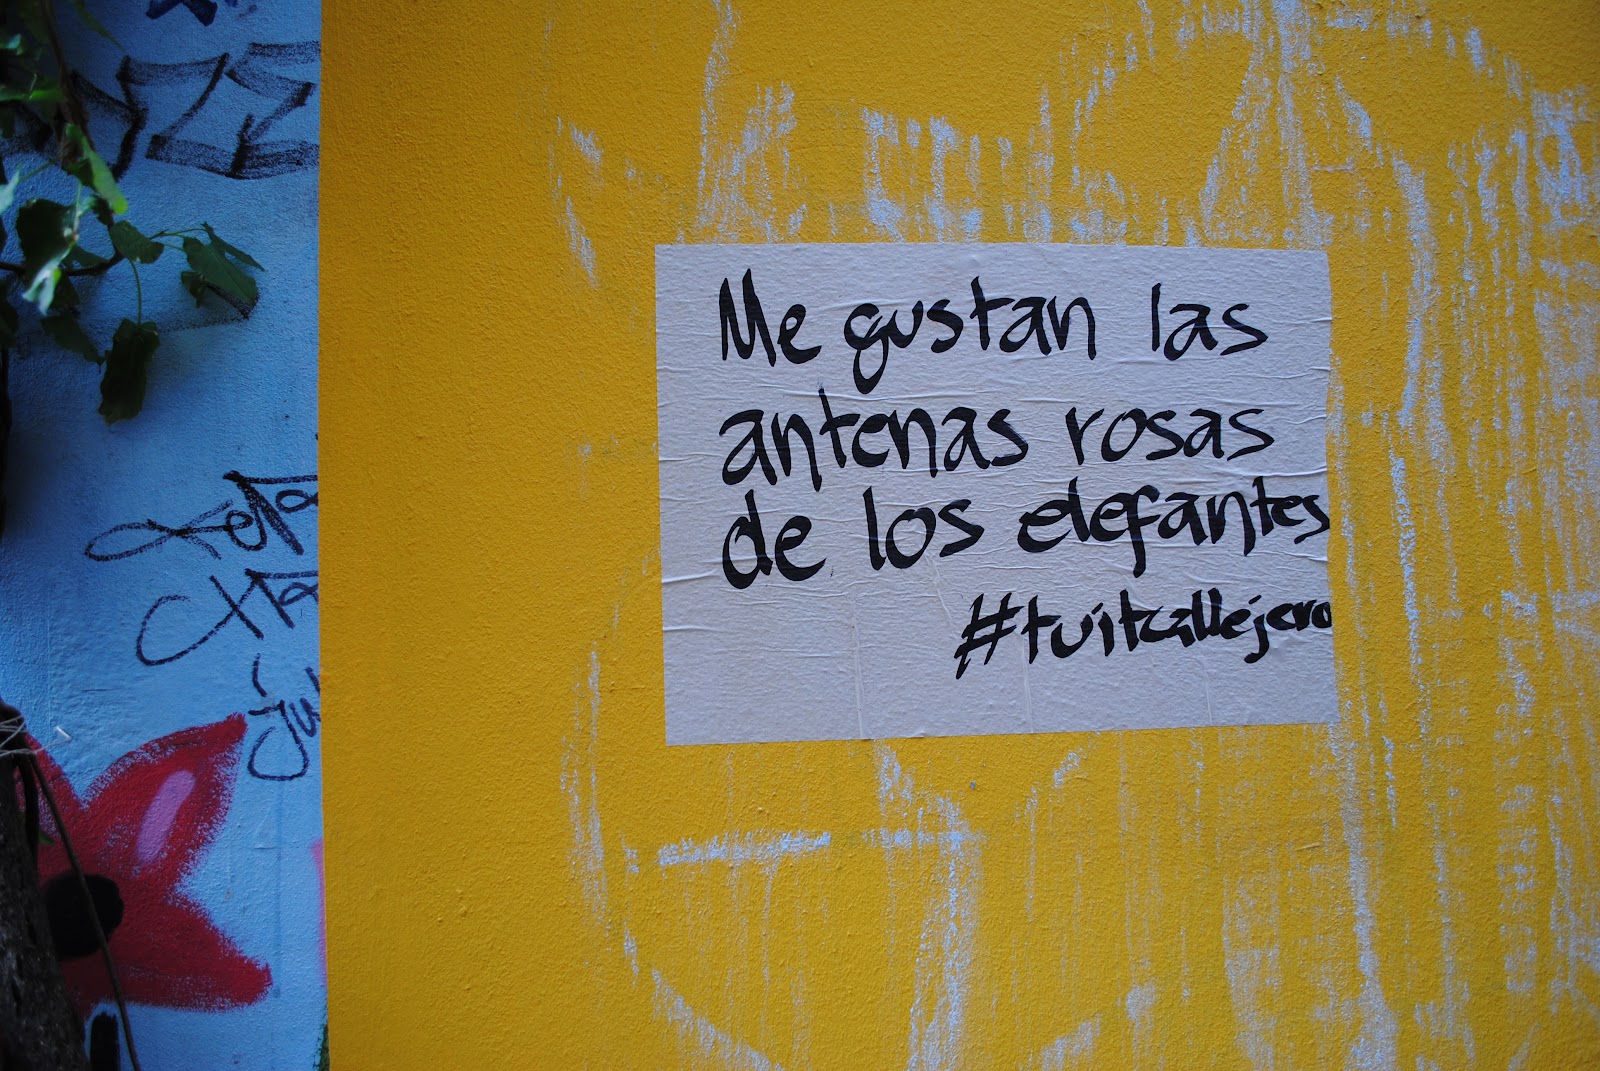 Me gustan las
antenas rosas
de los elefantes
#tuitcallejero